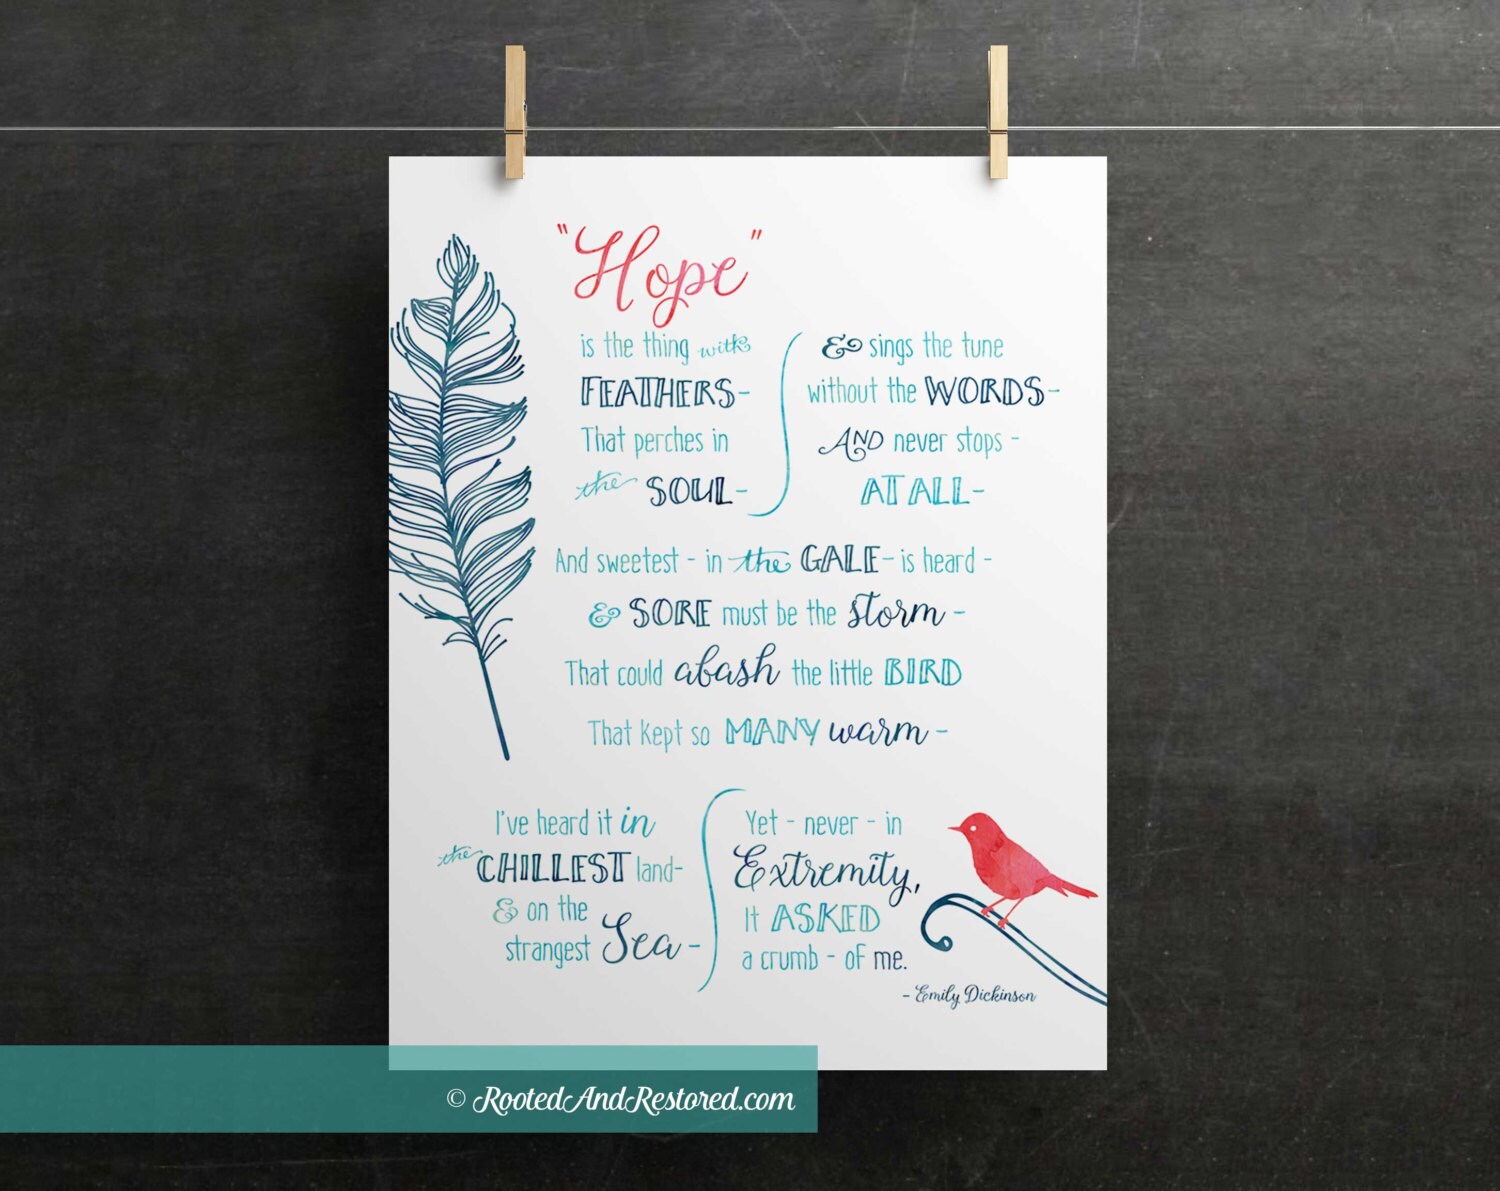 "Hope"
is the thing with
FEATHERS-
That perches in
the SOUL-
& sings the tune
without the WORDS-
AND never stops -
AT ALL-
And sweetest - in the GALE- is heard -
& SORE must be the storm -
That could abash the little BIRD
That kept so MANY warm -
I've heard it in
the CHILLEST land-
& on the
strangest Sea -
Yet - never - in
Extremity,
It ASKED
a crumb - of me.
- Emily Dickinson
© RootedAndRestored.com